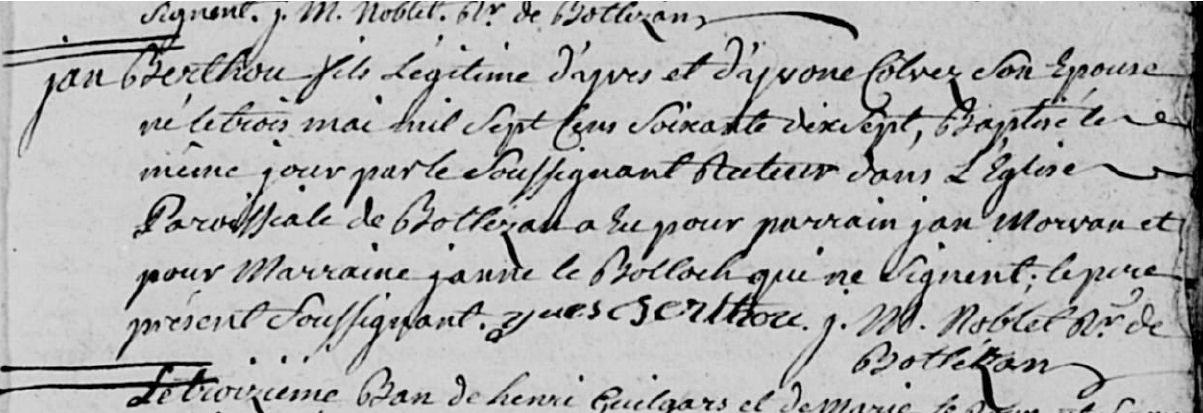 signent. j. M. Noblet. Rr. de Botlezan
jan Berthou fils Légitime d'yves et d'yvone Colvez son Epouse
né le trois mai mil sept cens soixante dix sept, Baptisé le
même jour par le soussignant Recteur dans L'Eglise
Paroissiale de Botlezan a Eu pour parrain jan Morvan et
pour Marraine janne le Bolloch qui ne signent; le pere
présent soussignant. yves Berthou. j. M. Noblet Rr. de
Botlézan
Le troizieme Ban de henri Guilgars et de Marie le